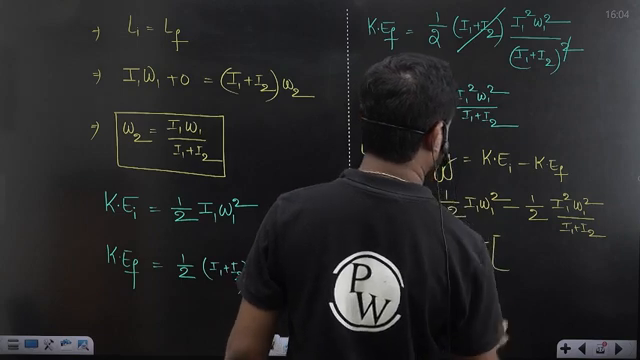 ⇒ Lᵢ = L_f
⇒ I₁ω₁ + 0 = (I₁+I₂)ω₂
⇒ ω₂ = I₁ω₁ / (I₁+I₂)
K·Eᵢ = 1/2 I₁ω₁²
K·E_f = 1/2 (I₁+I₂)
16:04
K·E_f = 1/2 (I₁+I₂) I₁²ω₁² / (I₁+I₂)²
I₁²ω₁² / (I₁+I₂)
= K·Eᵢ − K·E_f
1/2 I₁ω₁² − 1/2 I₁²ω₁² / (I₁+I₂)
[
PW